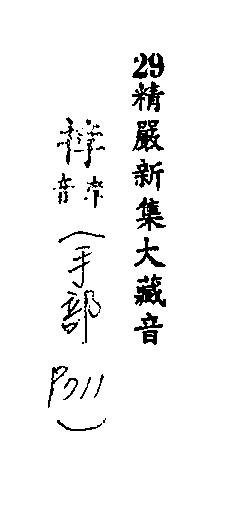 29精嚴新集大藏音
音(手部 P711)